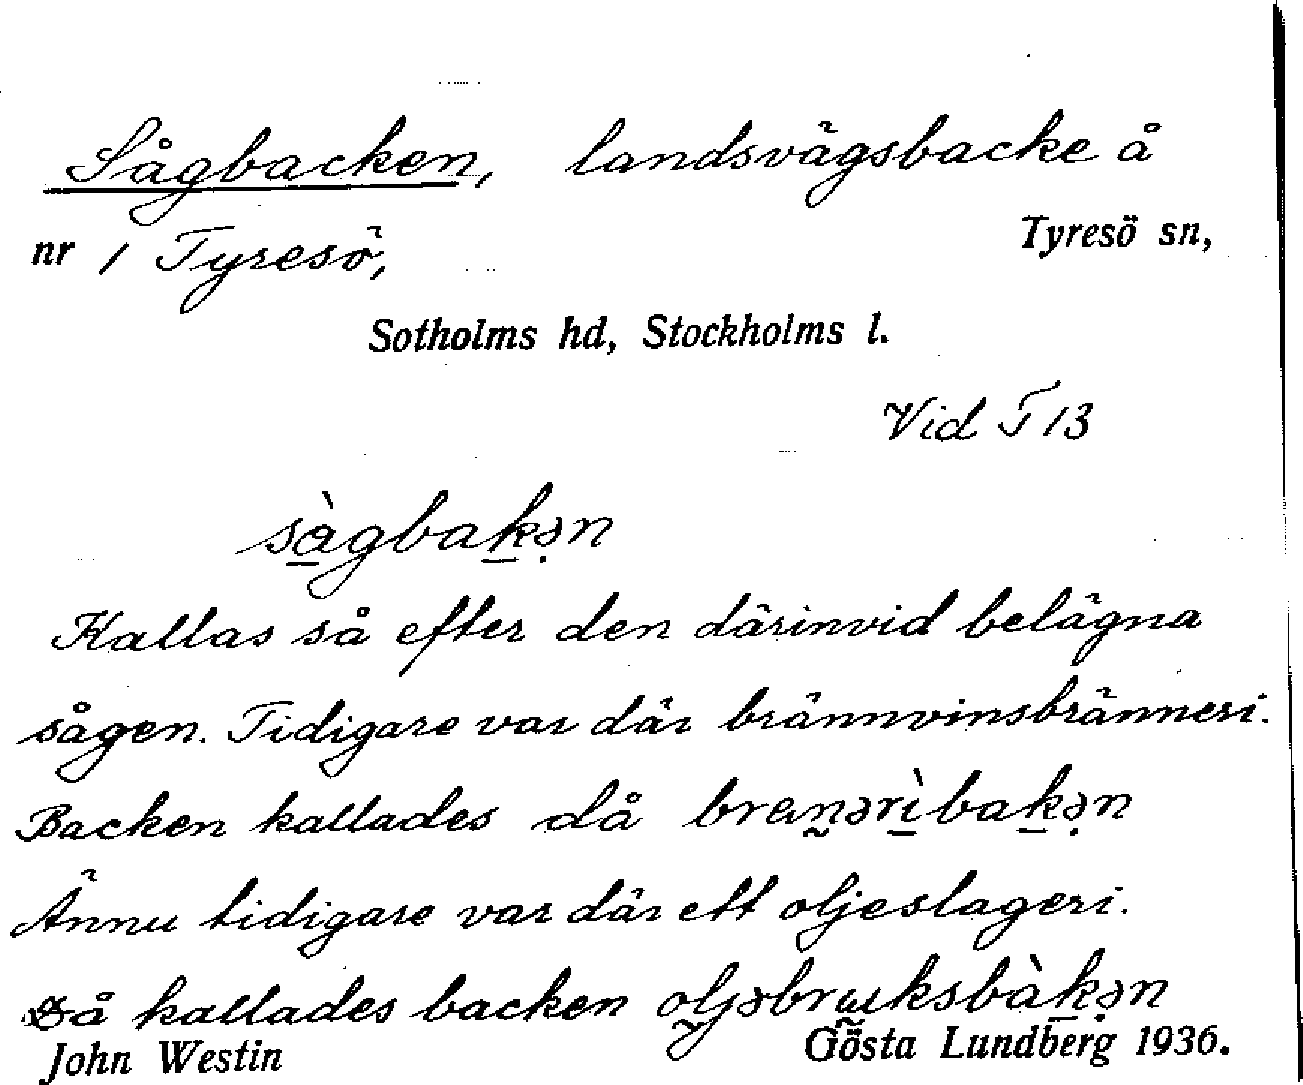 Sågbacken, landsvägsbacke å
nr 1 Tyresö, Tyresö sn,
Sotholms hd, Stockholms l.
Vid T 13
sà̱gbaḵə̣n
Kallas så efter den därinvid belägna
sågen. Tidigare var där brännvinsbränneri.
Backen kallades då bren̰ərì̱baḵə̣n
Ännu tidigare var där ett oljeslageri.
Då kallades backen oljəbrṵksbàḵə̣n
John Westin Gösta Lundberg 1936.